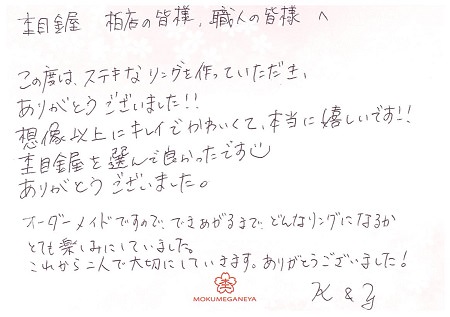 杢目金屋 柏店の皆様、職人の皆様 へ
この度は、ステキなリングを作っていただき、
ありがとうございました!!
想像以上にキレイでかわいくて、本当に嬉しいです!!
杢目金屋を選んで良かったです
ありがとうございました。
オーダーメイドですので、できあがるまで、どんなリングになるか
とても楽しみにしていました。
これから二人で大切にしていきます。ありがとうございました!
MOKUMEGANEYA
K & Y